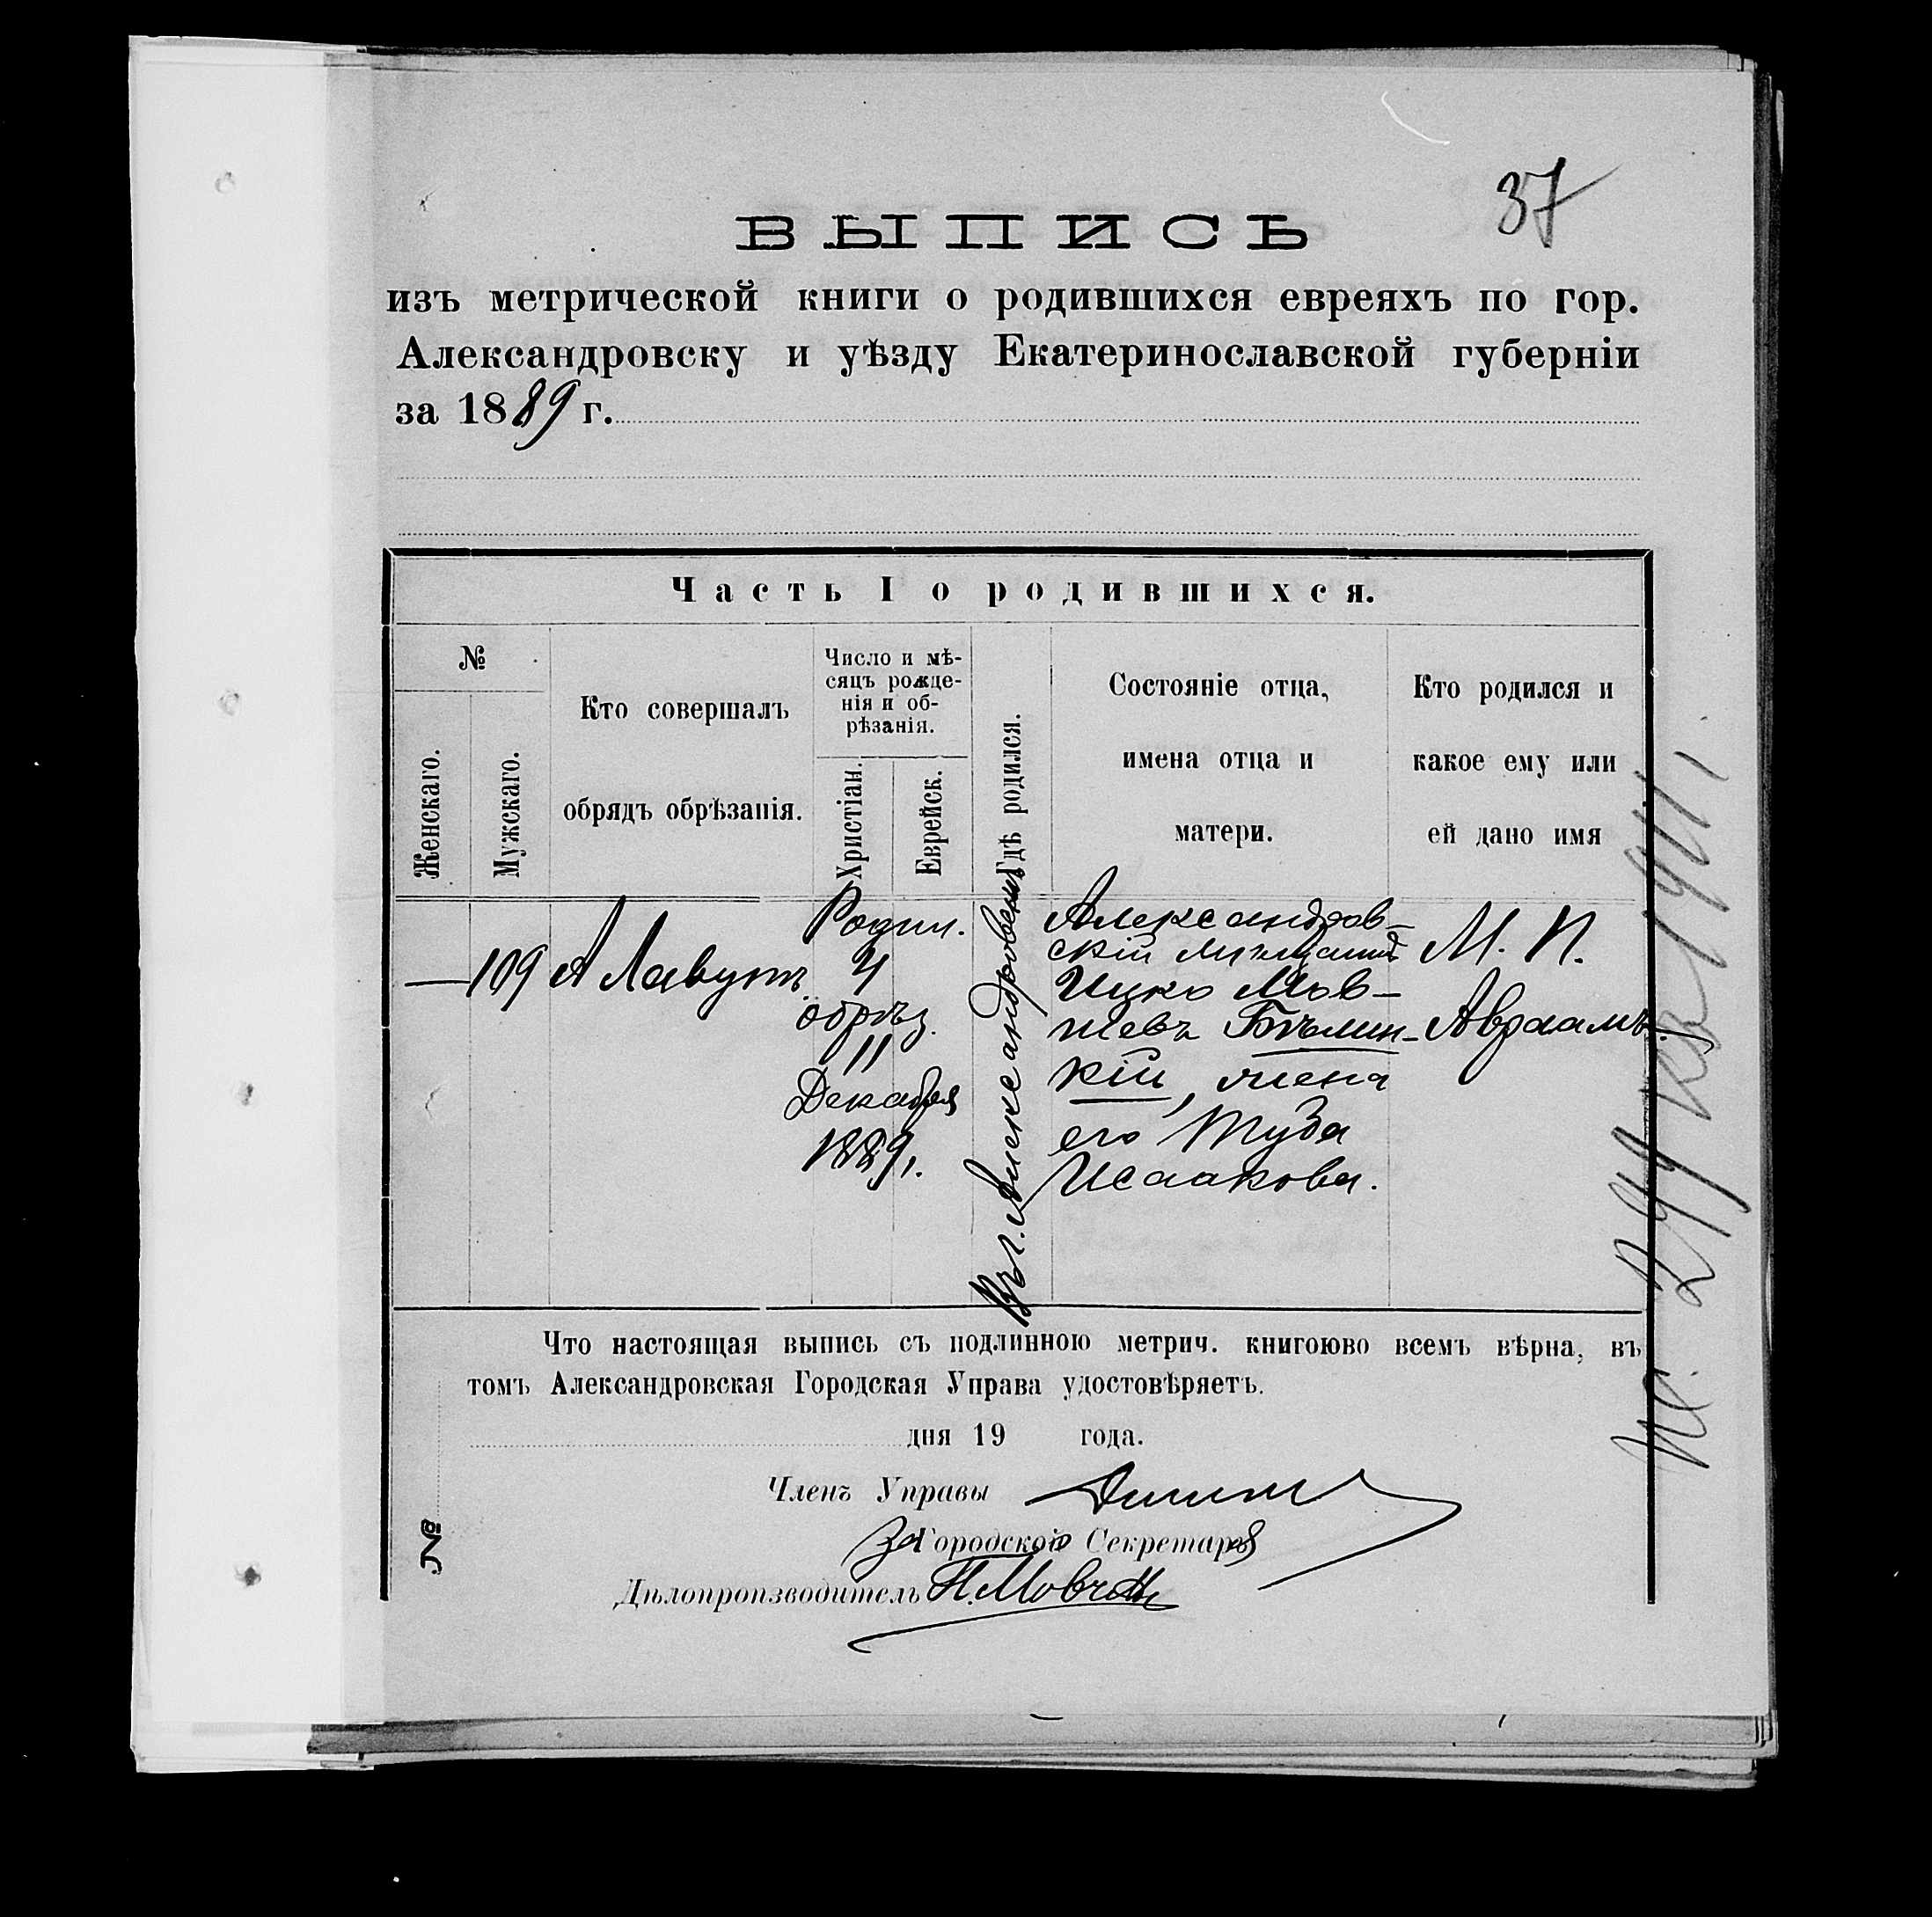 37
ВЫПИСЬ
изъ метрической книги о родившихся евреяхъ по гор.
Александровску и уѣзду Екатеринославской губерніи
за 1889 г.
Часть I о родившихся.
№
Женскаго.
Мужскаго.
Кто совершалъ
обрядъ обрѣзанія.
Число и мѣ-
сяцъ рожде-
нія и об-
рѣзанія.
Христіан.
Еврейск.
Гдѣ родился.
Состояніе отца,
имена отца и
матери.
Кто родился и
какое ему или
ей дано имя
— 109
А Лавутъ
Родил.
4
обрѣз.
11
Декабря
1889г.
Въ г. Александровскѣ
Александров-
скій мѣщанинъ
Ицко Мов-
шевъ Бѣлин-
кій, жена
его Туба
Исаакова.
М. П.
Авраамъ.
Что настоящая выпись съ подлинною метрич. книгоюво всемъ вѣрна, въ
томъ Александровская Городская Управа удостовѣряетъ.
дня 19 года.
Членъ Управы
За Городской Секретаря
Дѣлопроизводитель П. Мовчан
№
№ 244 1911 г.